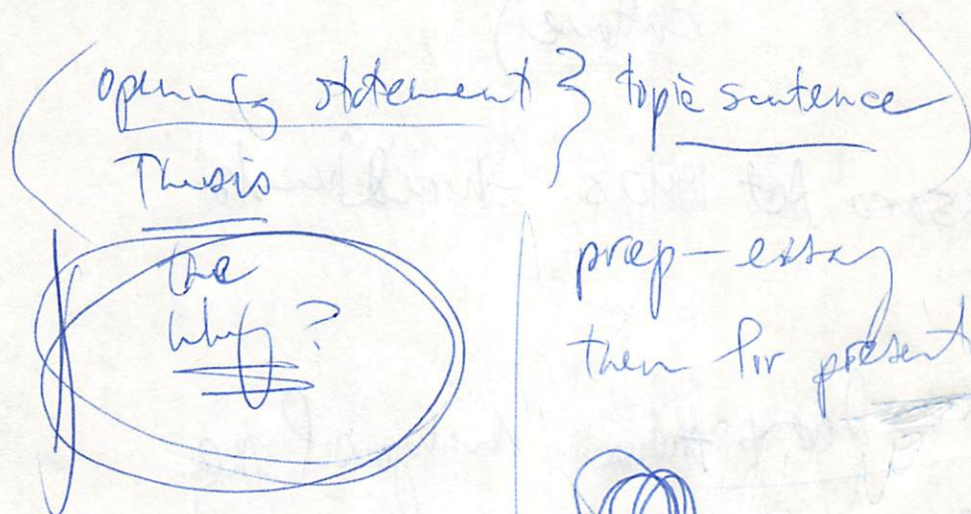 (opening statement } topic sentence)
Thesis
the
why?
prep-essay
them for present